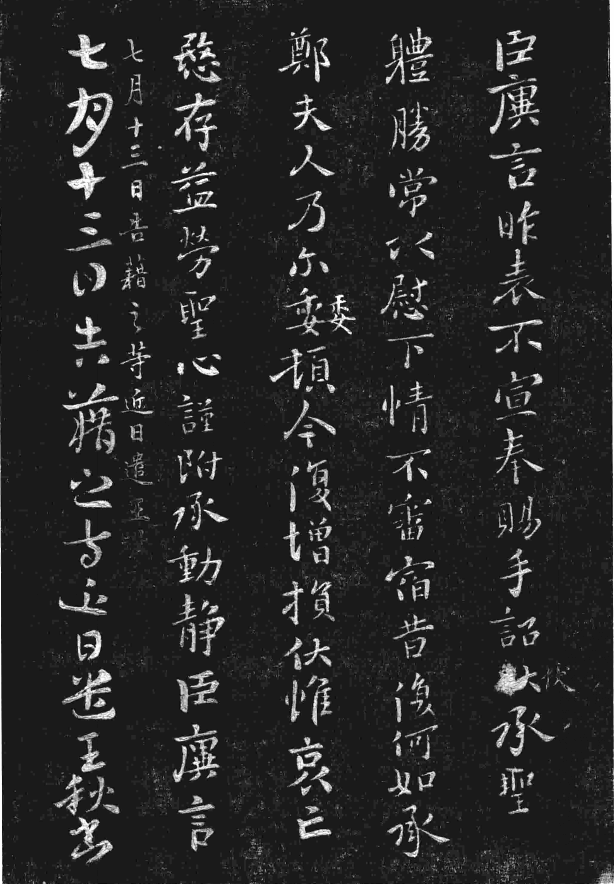 臣廙言昨表不宣奉賜手詔伏承聖
體勝常以慰下情不審宿昔復何如承
鄭夫人乃尓委頓今復增損伏惟哀亡
愍存益勞聖心謹附承動静臣廙言
七月十三日告藉之等近日遣王
七月十三日告藉之等近日遣王秋書